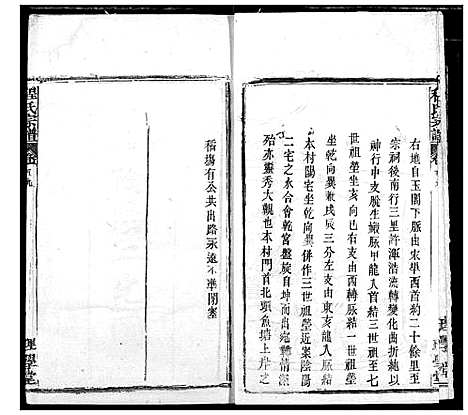 程氏宗譜
右地自玉閣下脈由宏學西首約二十餘里至
宗祠後南行三里許渾浩流轉變化曲折純以
神行中支脈生巽脈甲龍入首結三世祖 七
世祖塋坐亥向巳右支由西轉脈結一世祖塋
坐乾向巽兼戌辰三分左支由東亥龍入脈結
本村陽宅坐乾向巽併作三世祖塋近案陰陽
二宅之水合會乾宮盤旋自坤而出宛轉情深
殆亦靈秀大觀也本村門首北頭魚塘上岸之
理學堂
程氏宗譜
稻塲有公共出路永遠不準閉塞
理學堂